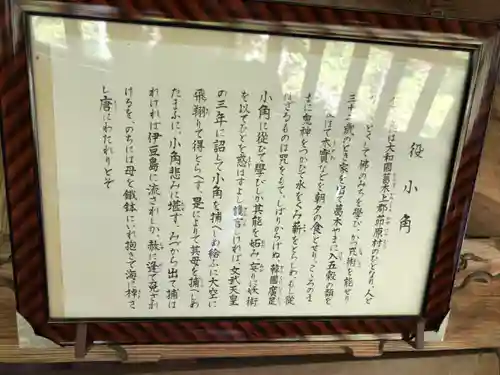 役小角
は大和国葛木上郡茆原村のひとなり、人と
として佛のみちを学び、かつ咒術を能せり
三十二歳のとき家を出て葛木やまに入五穀の類を
て木實などを朝夕の食となし、こころのま
まに鬼神をつかひて水をくみ薪をとらしめ、もし従
はざるものは咒をもてしばりからげぬ、韓國廣足
小角に従ひて学びしが其能を妬み妄りに妖術
を以てひとを惑はすよし讒言しければ、文武天皇
の三年に詔して小角を捕へしめ給ふに大空に
飛翔りて得とらへず、是によりて其母を捕へしめ
たまふに、小角悲みに堪ず、みづから出て捕は
れければ伊豆島に流されしが、赦に逢て免され
けるを、のちには母を鐵鉢にいれ抱きて海に神さ
し唐にわたれりとぞ